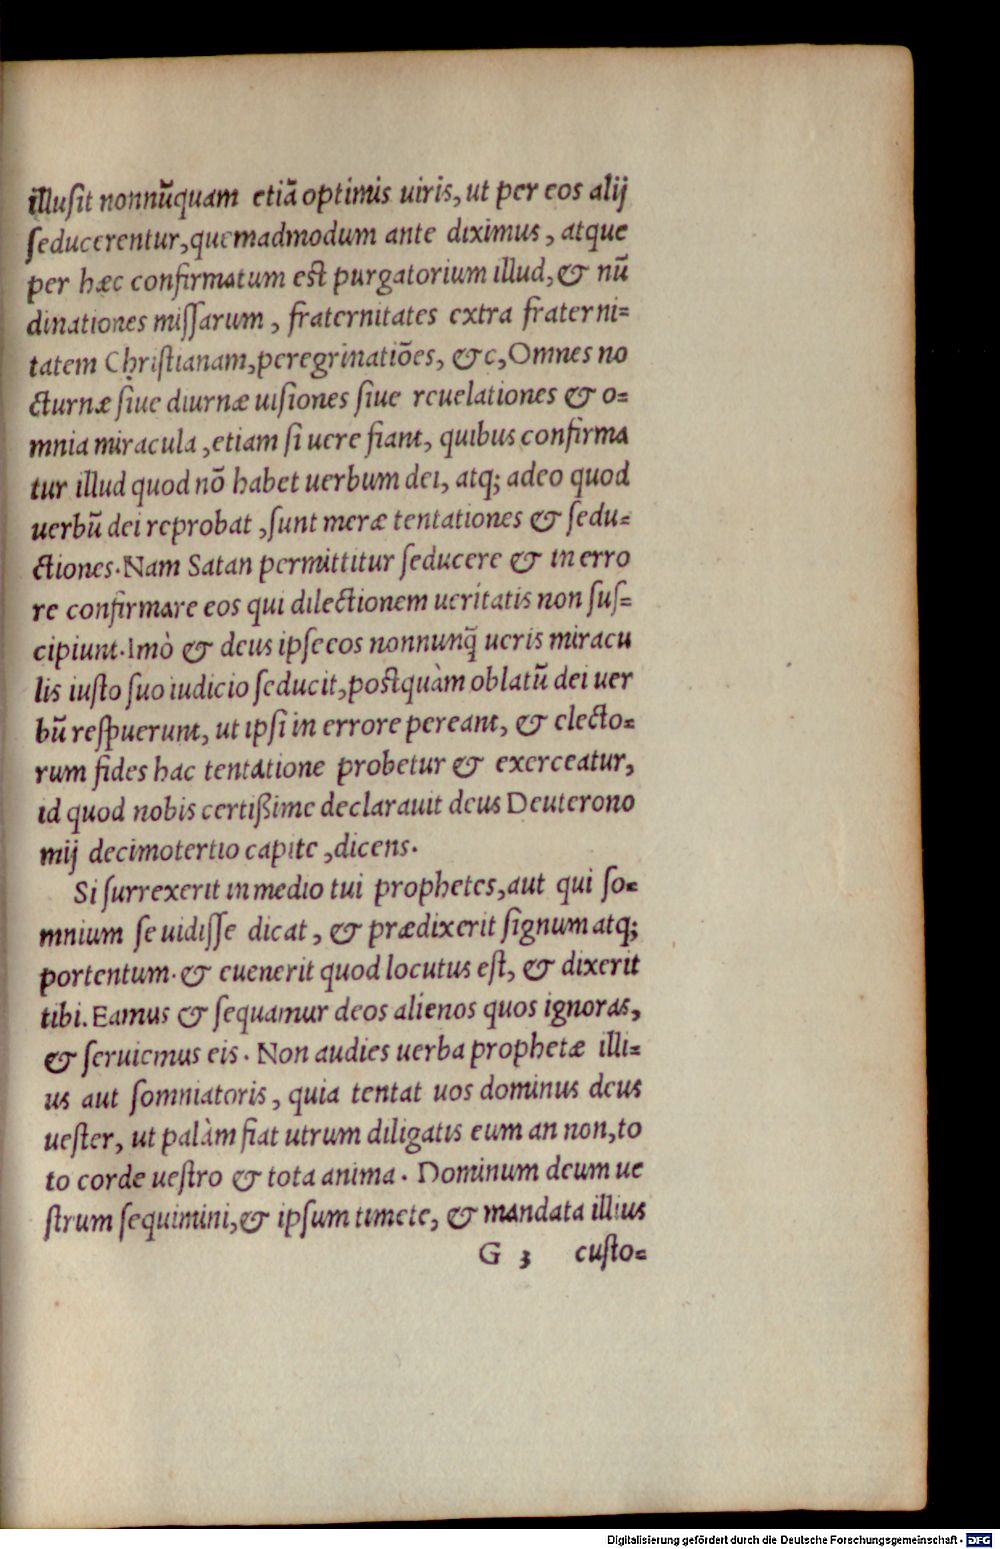 illuſit nonnũquam etiã optimis uiris, ut per eos alij
ſeducerentur, quemadmodum ante diximus, atque
per hæc confirmatum eſt purgatorium illud, & nũ
dinationes miſſarum, fraternitates extra fraterni=
tatem Chriſtianam, peregrinatiões, &c, Omnes no
cturnæ ſiue diurnæ uiſiones ſiue reuelationes & o=
mnia miracula, etiam ſi uere fiant, quibus confirma
tur illud quod nõ habet uerbum dei, atq; adeo quod
uerbũ dei reprobat, ſunt meræ tentationes & ſedu=
ctiones. Nam Satan permittitur ſeducere & in erro
re confirmare eos qui dilectionem ueritatis non ſuſ=
cipiunt. Imò & deus ipſe eos nonnunq̃ ueris miracu
lis iuſto ſuo iudicio ſeducit, poſtquàm oblatũ dei uer
bũ reſpuerunt, ut ipſi in errore pereant, & electo=
rum fides hac tentatione probetur & exerceatur,
id quod nobis certißime declarauit deus Deuterono
mij decimotertio capite, dicens.
Si ſurrexerit in medio tui prophetes, aut qui ſo=
mnium ſe uidiſſe dicat, & prædixerit ſignum atq;
portentum. & euenerit quod locutus eſt, & dixerit
tibi. Eamus & ſequamur deos alienos quos ignoras,
& ſeruiemus eis. Non audies uerba prophetæ illi=
us aut ſomniatoris, quia tentat uos dominus deus
ueſter, ut palàm fiat utrum diligatis eum an non, to
to corde ueſtro & tota anima. Dominum deum ue
ſtrum ſequimini, & ipſum timete, & mandata illius
G 3 cuſto=
Digitalisierung gefördert durch die Deutsche Forschungsgemeinschaft - DFG